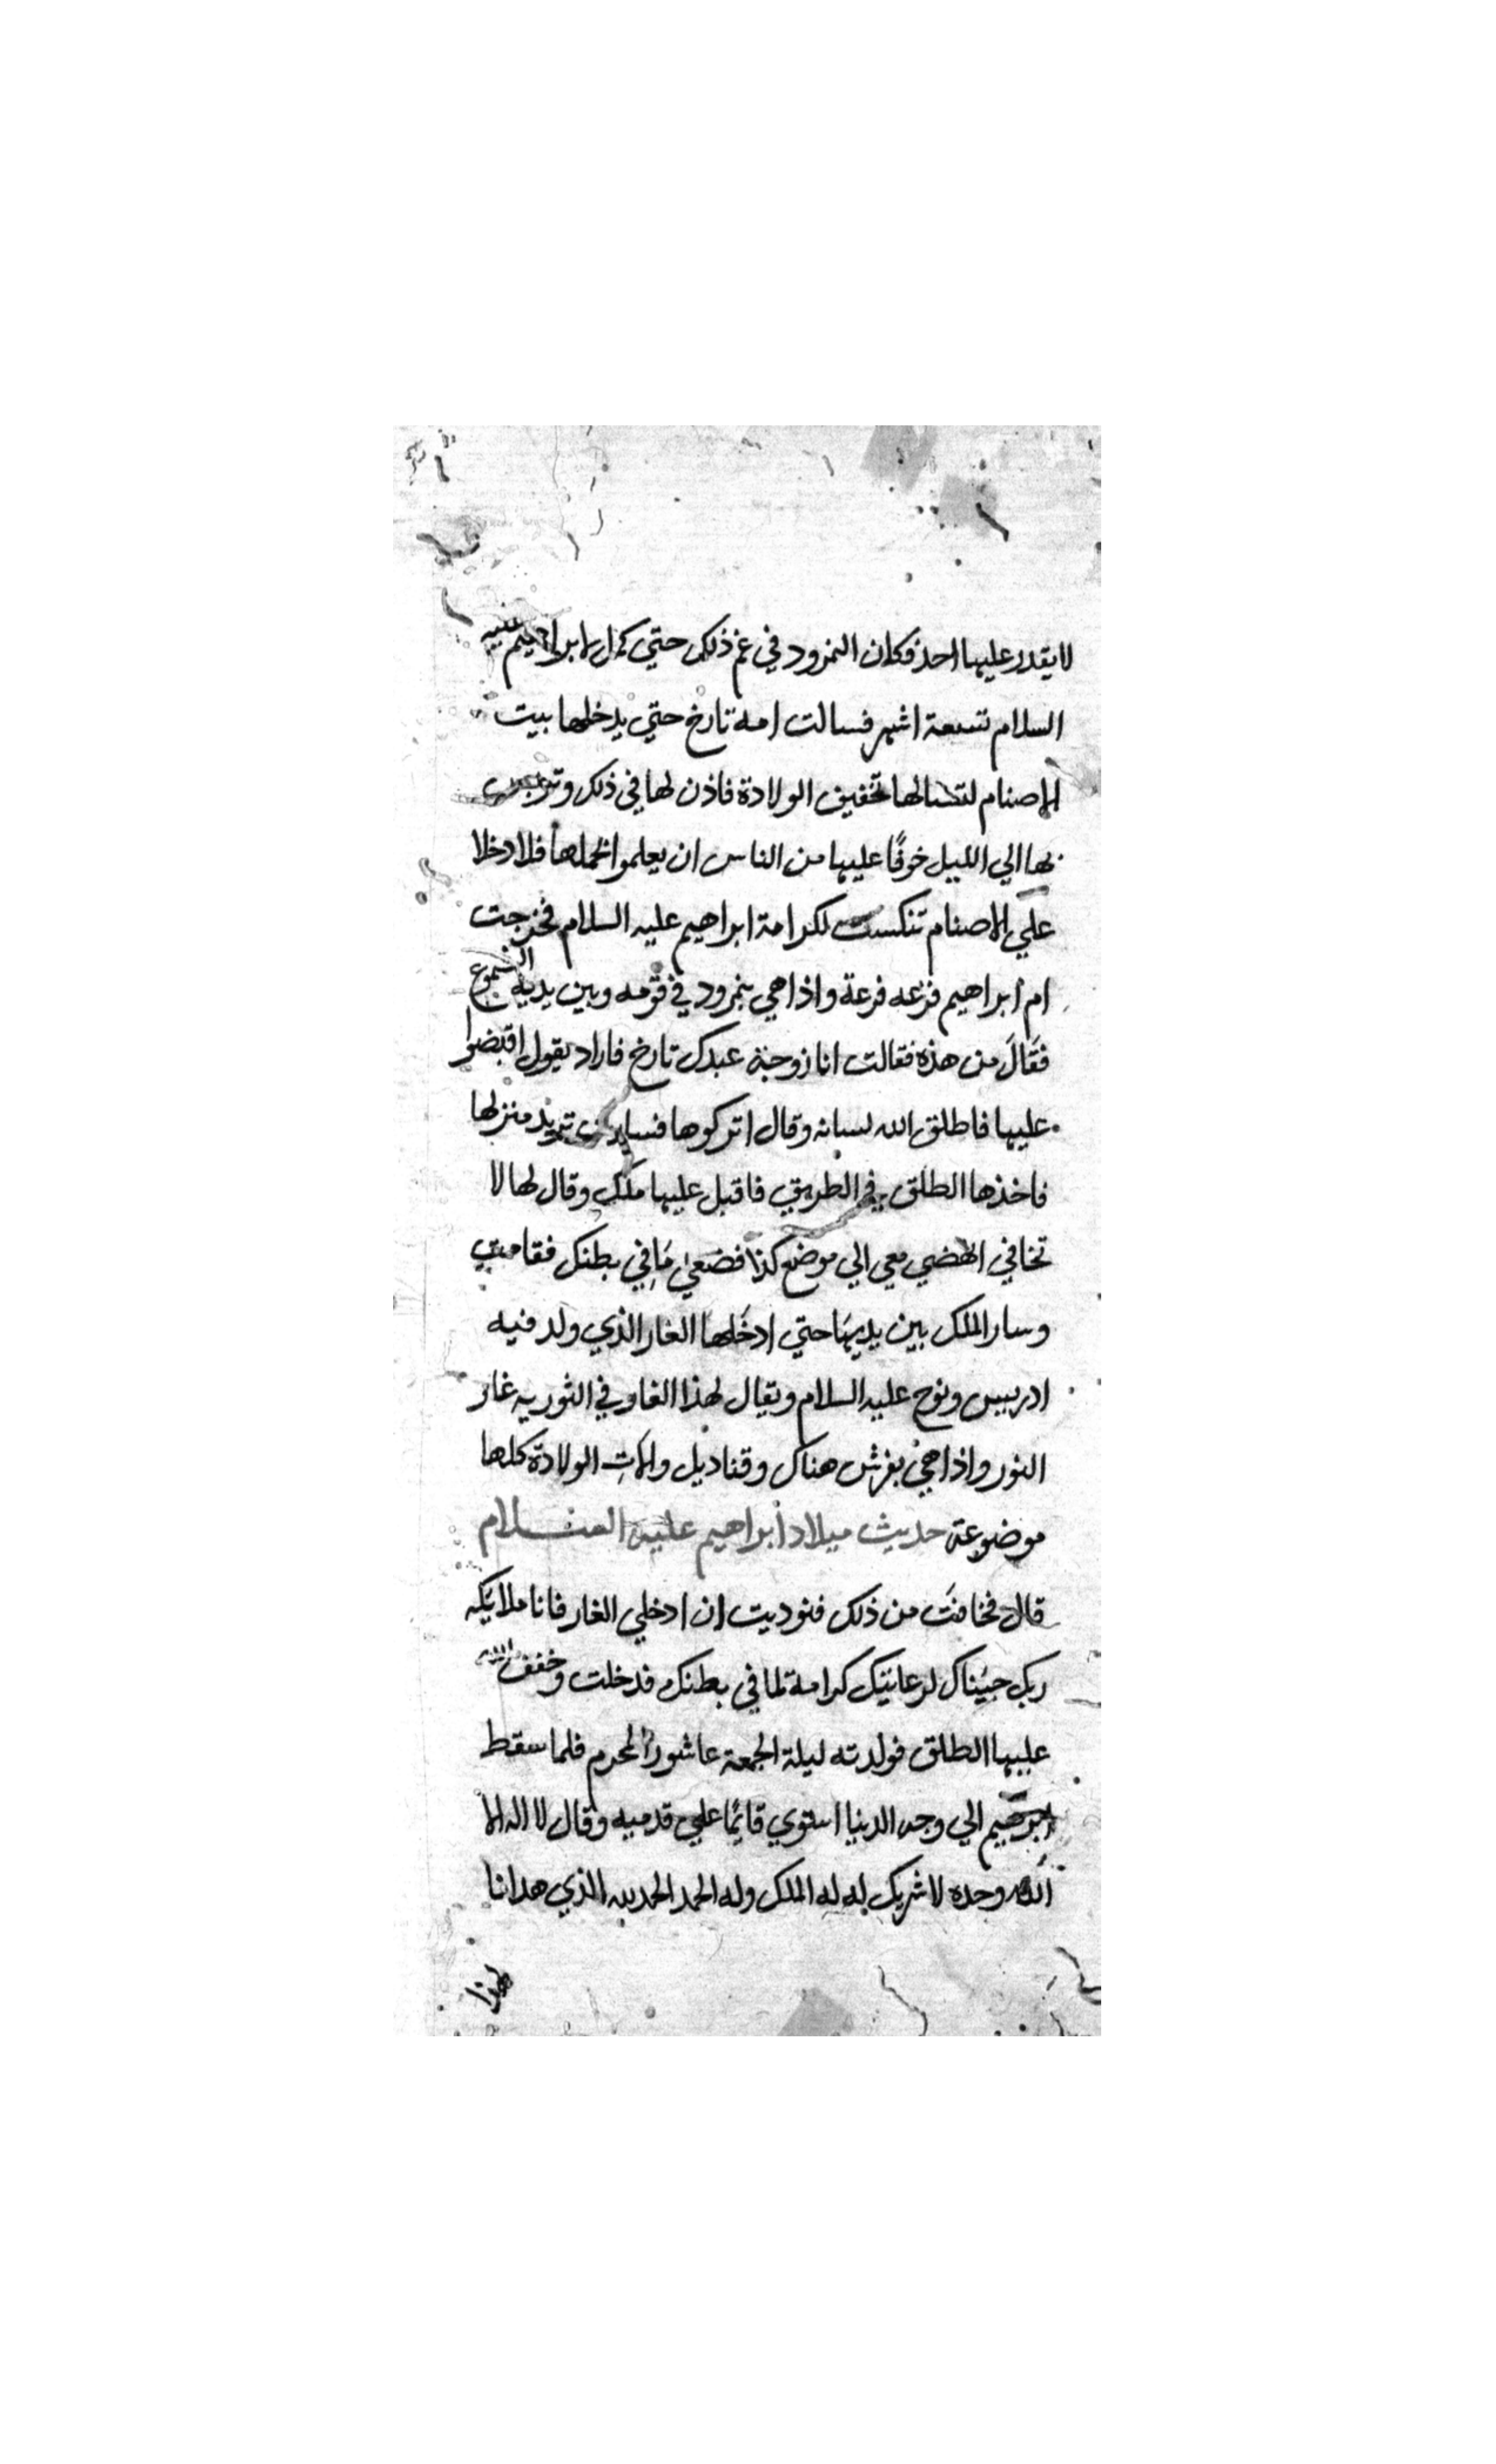 لا يقدر عليها احد فكان النمرود في غم ذلك حتي كمل لابراهيم عليه
السلام تسعة اشهر فسالت امه تارخ حتي يدخلها بيت
الاصنام لتسالها تخفيف الولادة فاذن لها في ذلك وتربص
بها الي الليل خوفًا عليها من الناس ان يعلموا بحملها فلما دخلا
علي الاصنام تنكست لكرامة ابراهيم عليه السلام فخرجت
ام ابراهيم فزعه فزعة واذا هي بنمرود في قومه وبين يديه الشموع
فقَالَ من هذه فقالت انا زوجة عبدك تارخ فاراد يقول اقبضوا
عليها فاطلق الله لسانه وقال اتركوها فسارت تريد منزلها
فاخذها الطلق في الطريق فاقبل عليها ملك وقال لها لا
تخافي انهضي معي الي موضع كذا فضعي مَا في بطنك فقامت
وسار الملك بين يديهَا حتي ادخَلها الغار الذي ولد فيه
ادريس ونوح عليه السلام ويقال لهذا الغار في التوريه غار
النور واذا هي بفرش هناك وقناديل والات الولادة كلها
موضوعة حديث ميلاد ابراهيم عليه السلام
قال فخافتَ من ذلك فنوديت ان ادخلي الغار فانا ملايكه
ربك جيناك لرعايتك كرامة لما في بطنك فدخلت وخفف الله
عليها الطلق فولدته ليلة الجمعة عاشورا المحرم فلما سقط
ابرهيم الي وجه الدنيا استوي قايمًا علي قدميه وقال لا اله الا
الله وحده لا شريك له له الملك وله الحمد الحمد لله الذي هدانا
لهذا